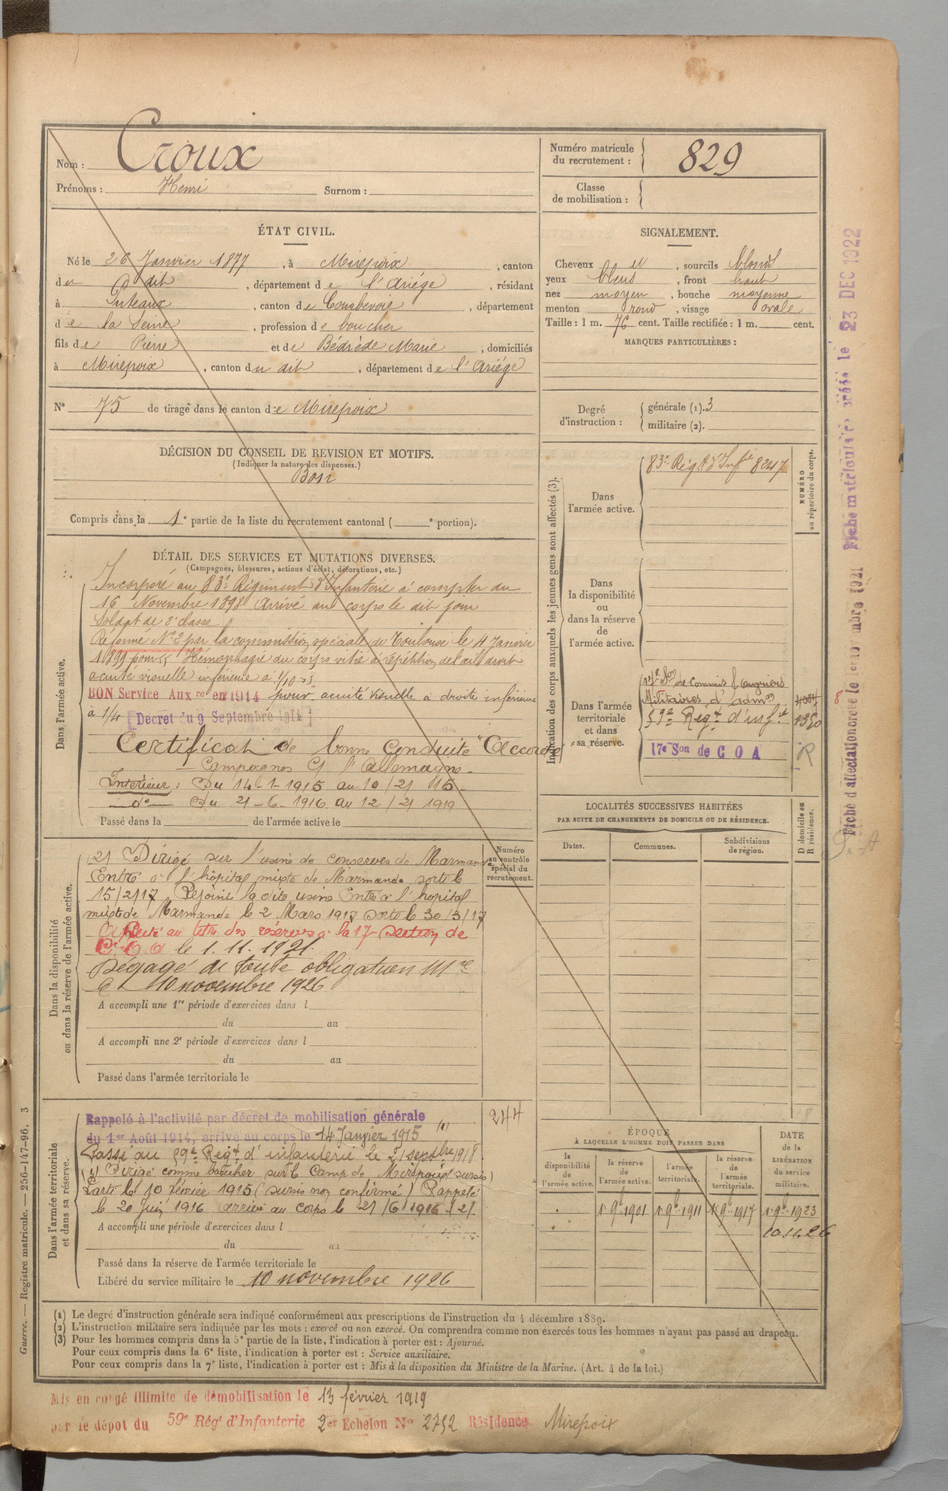 Nom : Croux
Prénoms : Henri Surnom :
Numéro matricule du recrutement : 829
Classe de mobilisation :
ÉTAT CIVIL.
Né le 26 Janvier 1877, à Mirepoix, canton
du dit, département de l'Ariége, résidant
à Puteaux, canton de Courbevoie, département
de la Seine, profession de boucher
fils de Pierre et de Bédrède Marie, domiciliés
à Mirepoix, canton du dit, département de l'Ariége
N° 75 de tirage dans le canton de Mirepoix
SIGNALEMENT.
Cheveux id, sourcils blond
yeux bleus, front haut
nez moyen, bouche moyenne
menton rond, visage ovale
Taille : 1 m. 76 cent. Taille rectifiée : 1 m. cent.
MARQUES PARTICULIÈRES :
Degré d'instruction : générale (1). 3
militaire (2).
DÉCISION DU CONSEIL DE REVISION ET MOTIFS.
(Indiquer la nature des dispenses.)
Bon
Compris dans la 1e partie de la liste du recrutement cantonal ( e portion).
DÉTAIL DES SERVICES ET MUTATIONS DIVERSES.
(Campagnes, blessures, actions d'éclat, décorations, etc.)
Dans l'armée active.
Incorporé au 83e Régiment d'Infanterie à compter du
16 Novembre 1898 Arrivé au corps le dit jour
Soldat de 2e classe
Réformé N° 2 par la commission spéciale de Toulouse le 4 Janvier
1899 pour
acuité visuelle inférieure à
BON Service Aux re en 1914 pour acuité visuelle à droite inférieure
à 1/4 [Decret du 9 Septembre 1914]
Certificat de bonne conduite "Accordé"
Campagnes C/ l'Allemagne
Intérieur : Du 14-1-1915 au 10/2/15
do Du 21-6-1916 au 12/2/1919
Passé dans la de l'armée active le
Numéro au contrôle spécial du recrutement.
Dans la disponibilité ou dans la réserve de l'armée active.
(2) Dirigé sur l'usine de conserves de Marmande
Entré à l'hôpital mixte de Marmande sorti le
15/2/17 Rejoint la dite usine Entré à l'hôpital
mixte de Marmande le 2 Mars 1917 sorti le 30/3/17
Affecté au titre des réserves à la 17e Section de
C.O.A le 1.11.1921.
Dégagé de toute obligation Mre
le 10 novembre 1926
A accompli une 1re période d'exercices dans l
du au
A accompli une 2e période d'exercices dans l
du au
Passé dans l'armée territoriale le
Dans l'armée territoriale et dans sa réserve.
244
Rappelé à l'activité par décret de mobilisation générale
du 1er Août 1914, arrivé au corps le 14 Janvier 1915 (1)
Passé au 59e Regt d'infanterie le 21 septbre 1918
(1) Dirigé comme boucher sur le Camp de Mirepoix (sursis)
Parti le 10 février 1915 (sursis non confirmé) Rappelé
le 20 juin 1916 arrivé au corps le 21/6/1916 (2).
A accompli une période d'exercices dans l
du au
Passé dans la réserve de l'armée territoriale le
Libéré du service militaire le 10 novembre 1926
Indication des corps auxquels les jeunes gens sont affectés (3).
NUMÉRO au répertoire du corps.
Dans l'armée active. 83e Régt d'Infie 8247
Dans la disponibilité ou dans la réserve de l'armée active.
Dans l'armée territoriale et dans sa réserve.
17e Son de Commis
Militaires d'admon
59e Regt d'infie 1320
17e Son de C O A R
LOCALITÉS SUCCESSIVES HABITÉES
PAR SUITE DE CHANGEMENTS DE DOMICILE OU DE RÉSIDENCE.
Dates. Communes. Subdivisions de région. D domicile ou R résidence.
ÉPOQUE
À LAQUELLE L'HOMME DOIT PASSER DANS
DATE de la LIBÉRATION du service militaire.
la disponibilité de l'armée active. la réserve de l'armée active. l'armée territoriale. la réserve de l'armée territoriale.
1 9bre 1901 1 9bre 1911 1 9bre 1917 1 9bre 1923
10.11.26
(1) Le degré d'instruction générale sera indiqué conformément aux prescriptions de l'instruction du 4 décembre 1889.
(2) L'instruction militaire sera indiquée par les mots : exercé ou non exercé. On comprendra comme non exercés tous les hommes n'ayant pas passé au drapeau.
(3) Pour les hommes compris dans la 5e partie de la liste, l'indication à porter est : Ajourné.
Pour ceux compris dans la 6e liste, l'indication à porter est : Service auxiliaire.
Pour ceux compris dans la 7e liste, l'indication à porter est : Mis à la disposition du Ministre de la Marine. (Art. 4 de la loi.)
Mis en congé illimité de démobilisation le 13 février 1919
par le dépôt du 59e Régt d'Infanterie 2e Echelon N° 2752 Résidence Mirepoix
Guerre. — Registre matricule. — 256-147-96. 3
23 DEC 1922